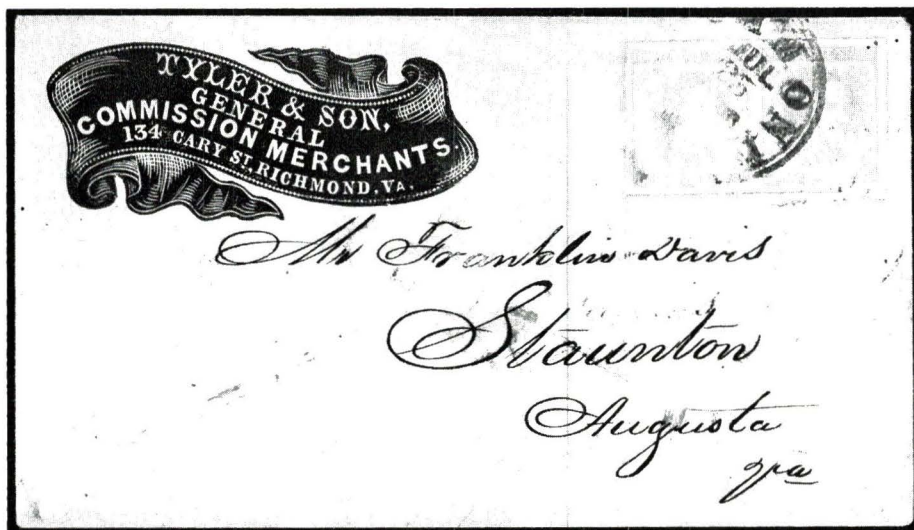 TYLER & SON,
GENERAL
COMMISSION MERCHANTS.
134 CARY ST, RICHMOND, VA.
JUL
Mr Franklin Davis
Staunton
Augusta
Va